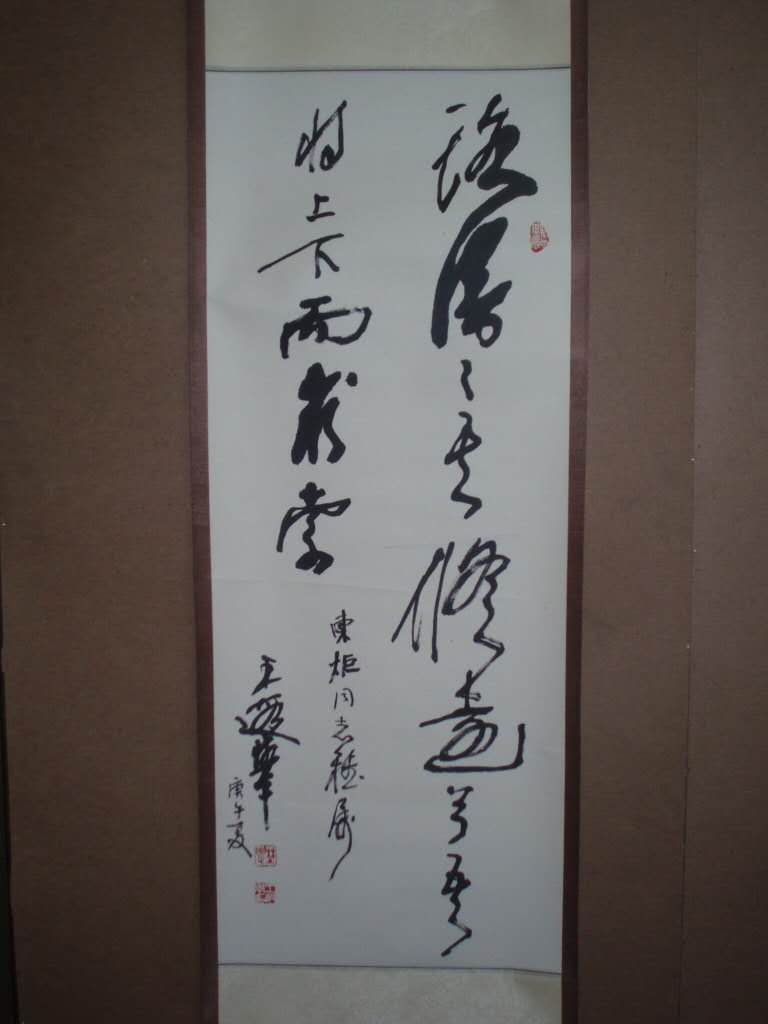 路漫〻其修遠兮吾
将上下而求索
東炬同志雅属
王遐舉
庚午夏